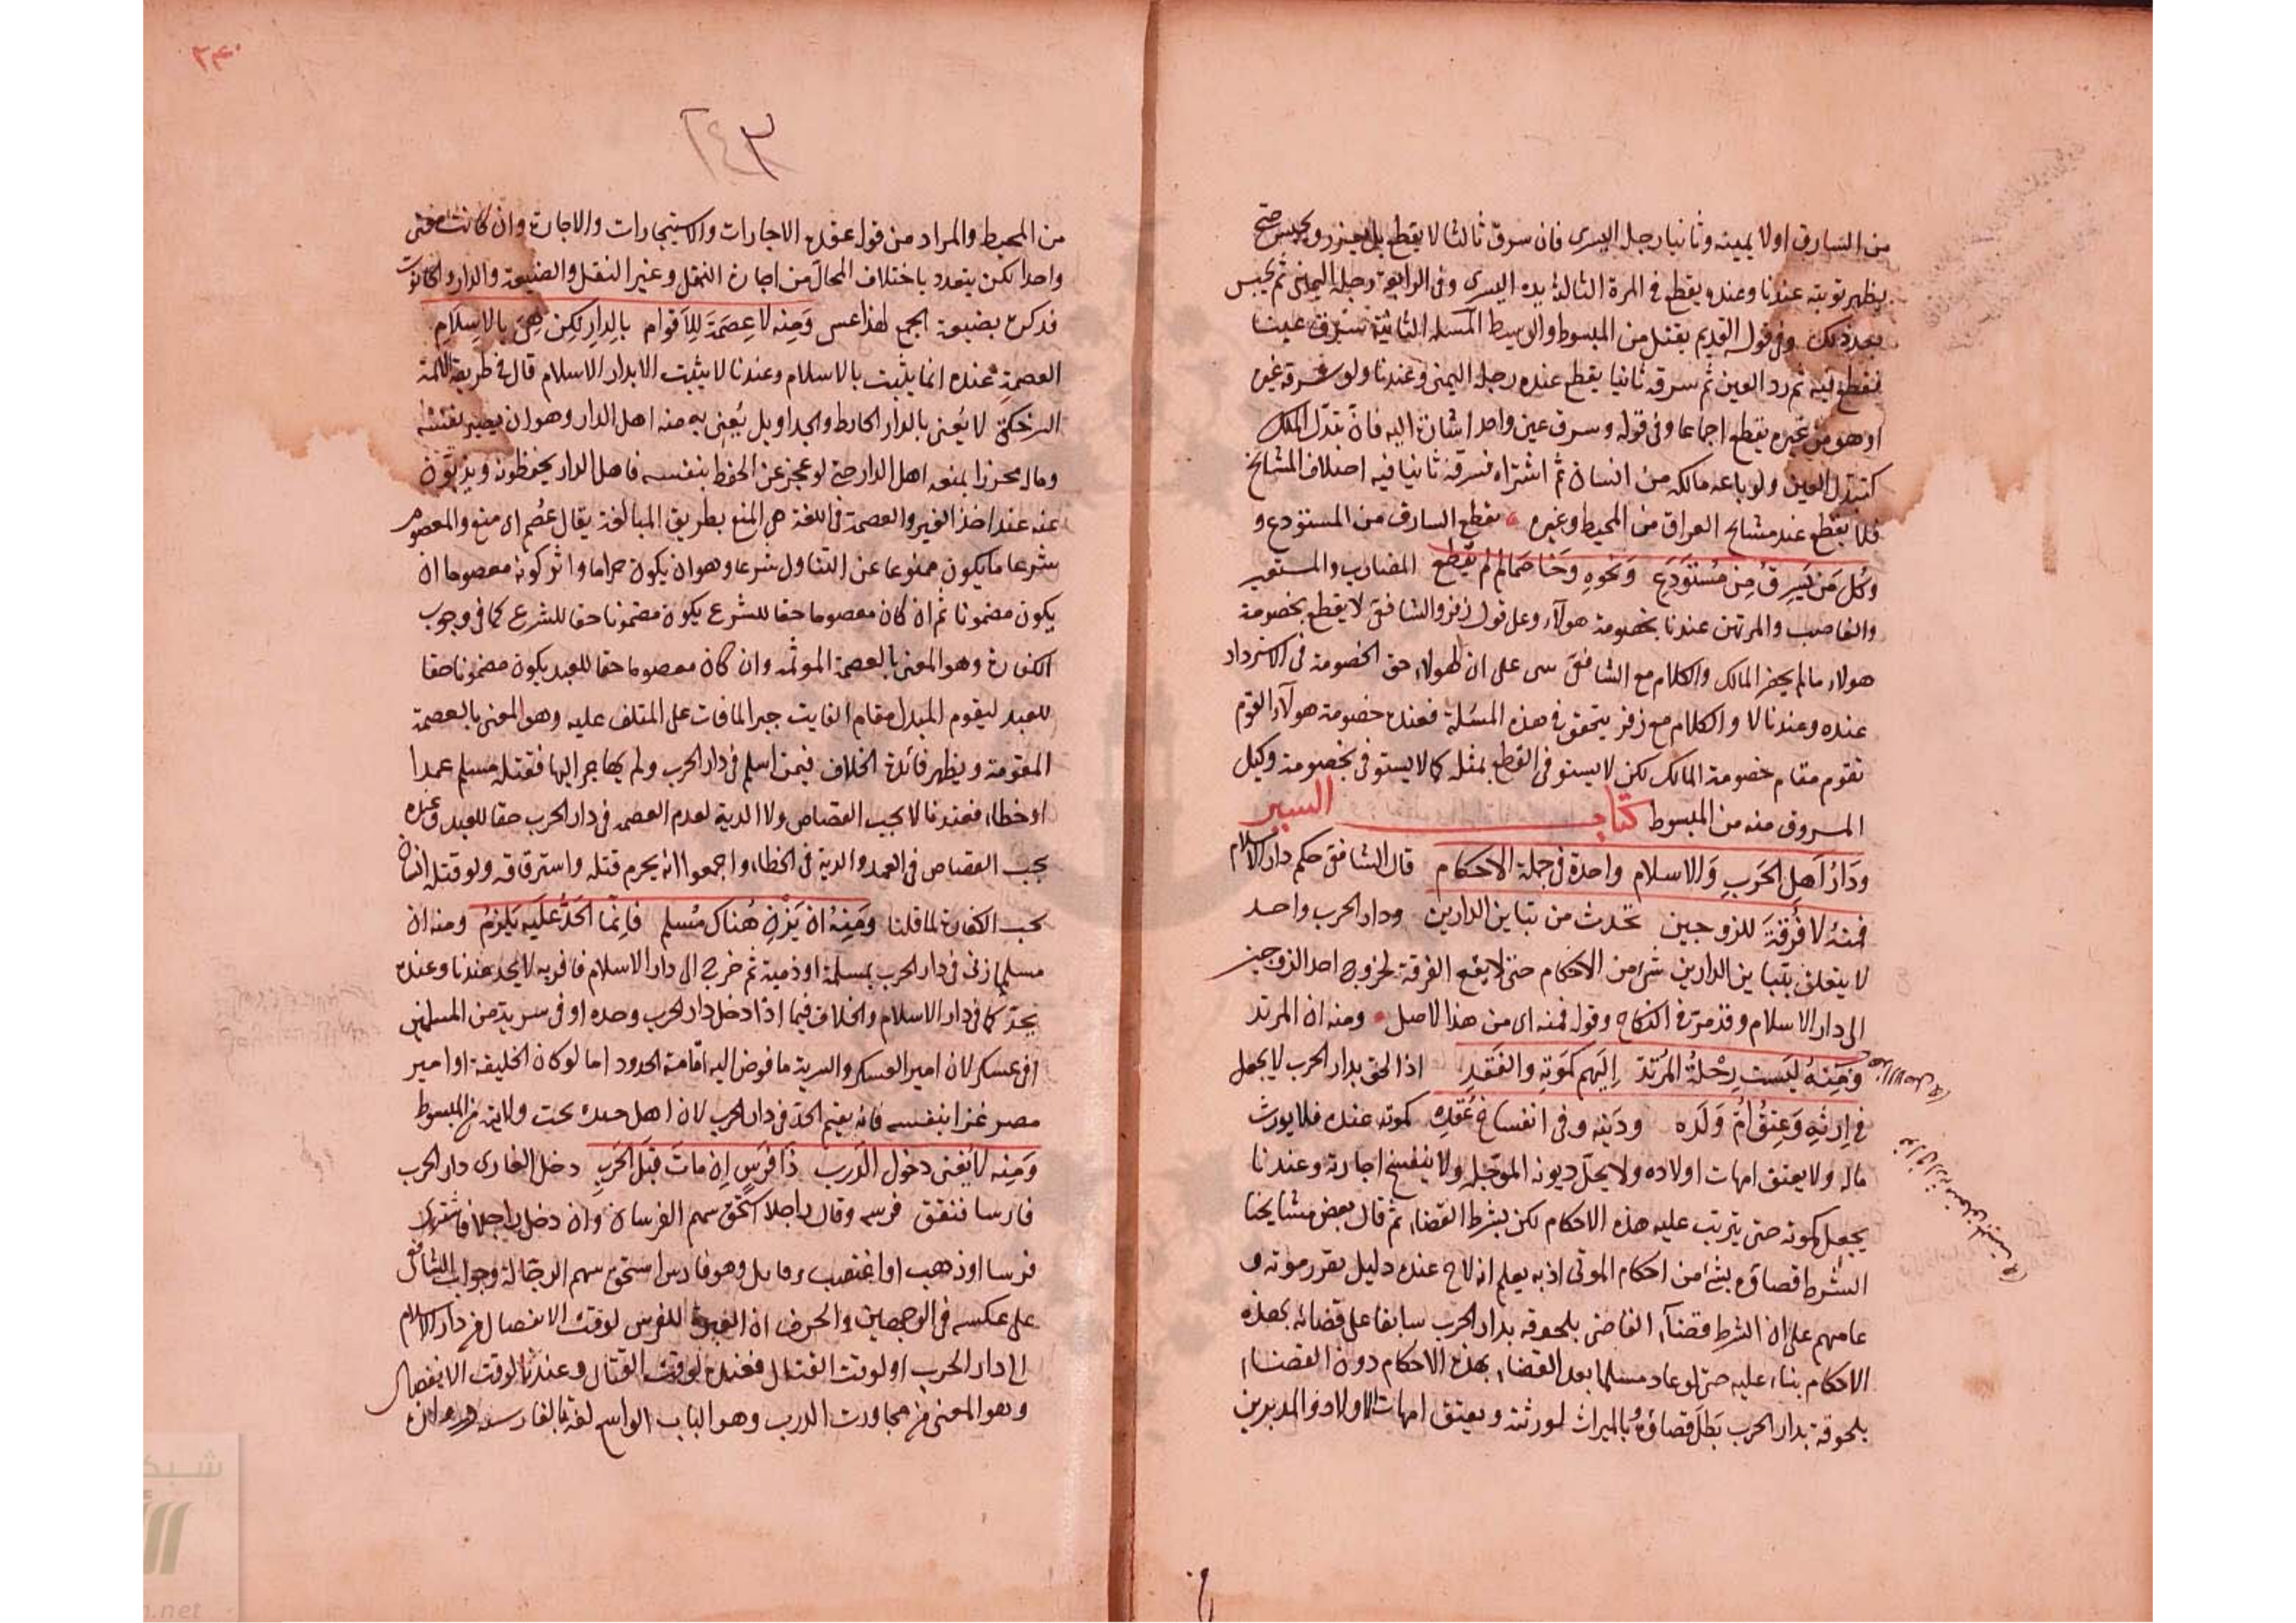 من السارق اولا يمينه وثانيا رجله اليسرى فان سرق ثالثا لا يقطع بل يعزر ويحبس حتى
يظهر توبته عندنا وعنده يقطع في المرة الثالثة يده اليسرى وفي الرابعة رجله اليمنى ثم يحبس
بعد ذلك وفي قوله القديم يقتل من المبسوط والوسيط المسئلة الثانية سرق عينا
فقطع فيه ثم رد العين ثم سرقه ثانيا يقطع عنده رجله اليمنى وعندنا ولو سرقه غيره
او هو من غيره يقطع اجماعا وفي قوله وسرق عين واحد اشارة اليه فان تبدل الملك
كتبدل العين ولو باعه مالكه من انسان ثم اشتراه فسرقه ثانيا فيه اختلاف المشائخ
فلا يقطع عند مشائخ العراق من المحيط وغيره يقطع السارق من المستودع و
وكل من يسرق من مستودع ونحوه وخاصما لم يقطع المضارب والمستعير
والغاصب والمرتهن عندنا بخصومة هولاء وعلى قول زفر والشافعي لا يقطع بخصومة
هولاء ما لم يحضر المالك والكلام مع الشافعي على ان لهولاء حق الخصومة في الاسترداد
عنده وعندنا لا والكلام مع زفر يتحقق في هذه المسئلة فعنده خصومة هولاء القوم
تقوم مقام خصومة المالك لكن لا يستوفى القطع بمثله كما لا يستوفى بخصومة وكيل
المسروق منه من المبسوط كتاب السير
ودار اهل الحرب والاسلام واحدة في جملة الاحكام قال الشافعي حكم دار الاسلام
فمنه لا فرقة للزوجين تحدث من تباين الدارين ودار الحرب واحد
لا يتعلق بتباين الدارين شيء من الاحكام حتى لا يقع الفرقة لخروج احد الزوجين
الى دار الاسلام وقد مر في النكاح وقوله فمنه اى من هذا الاصل ومنه ان المرتد
ومنه ليست رحلة المرتد اليهم كموته والفقد اذا لحق بدار الحرب لا يجعل
في ارثه وعتق ام ولده ودينه وفى انفساخ عقده كموته عنده فلا يورث
ماله ولا يعتق امهات اولاده ولا يحل ديونه المؤجله ولا ينفسخ اجارته وعندنا
يجعل كموته حتى يترتب عليه هذه الاحكام لكن بشرط القضاء ثم قال بعض مشايخنا
الشرط قضاؤه بشئ من احكام الموتى اذ به يعلم انه لاح عنده دليل تقرر موته و
عامهم على ان الشرط قضاء القاضى بلحوقه بدار الحرب سابقا على قضائه بهذه
الاحكام بناء عليه حتى لو عاد مسلما بعد القضاء بهذه الاحكام دون القضاء
بلحوقه بدار الحرب بطل قضاؤه بالميراث لورثته وبعتق امهات الاولاد والمدبرين
٢٤٣
من المحيط والمراد من قوله عقده الاجارات والاستيجارات والاجارة وان كانت
واحدا لكن يتعدد باختلاف المحال من اجارة النقل وغير النقل والضيعة والدار والحانوت
فذكره بصيغة الجمع لهذا ومنه لا عصمة للاقوام بالدار لكن هى بالاسلام
العصمة عنده انما يثبت بالاسلام وعندنا لا يثبت الا بدار الاسلام قال في طريقة الائمة
لا يعنى بالدار الحائط والجدار بل يعنى به منعة اهل الدار وهو ان يصير بنفسه
وماله محرزا بمنعة اهل الدار حتى لو عجز عن الحفظ بنفسه فاهل الدار يحفظونه ويذبون
عنه عند اخذ الغير والعصمة في اللغة هى المنع بطريق المبالغة يقال عصم اى منع والمعصوم
شرعا ما يكون ممنوعا عن التناول شرعا وهو ان يكون حراما واثر كونه معصوما ان
يكون مضمونا ثم ان كان معصوما حقا للشرع يكون مضمونا حقا للشرع كما في وجوب
الكفارة وهو المعنى بالعصمة الموثمه وان كان معصوما حقا للعبد يكون مضمونا حقا
للعبد ليقوم المبدل مقام الفايت جبرا لما فات على المتلف عليه وهو المعنى بالعصمة
المقومة ويظهر فائدة الخلاف فيمن اسلم في دار الحرب ولم يهاجر الينا فقتله مسلم عمدا
او خطاء فعندنا لا يجب القصاص ولا الدية لعدم العصمه في دار الحرب حقا للعبد وعنده
يجب القصاص في العمد والدية في الخطاء واجمعوا انه يحرم قتله واسترقاقه ولو قتله انسان
يجب الكفارة لما قلنا ومنه ان يزن هناك مسلم فانما الحد عليه يلزم ومنه ان
مسلما زنى في دار الحرب بمسلمة او ذمية ثم خرج الى دار الاسلام فاقر به لا يحد عندنا وعنده
يحد كما في دار الاسلام والخلاف فيما اذا دخل دار الحرب وحده او في سرية من المسلمين
او في عسكر لان امير العسكر والسرية ما فوض اليه اقامة الحدود اما لو كان الخليفة او امير
مصر غزا بنفسه فانه يقيم الحد في دار الحرب لان اهل جنده تحت ولايته من المبسوط
ومنه لا يغنى دخول الدرب ذا فرس ان مات قبل الحرب دخل الغازى دار الحرب
فارسا فنفق فرسه وقاتل راجلا استحق سهم الفرسان وان دخل راجلا فاشترى
فرسا او ذهب او اغتصب وقاتل وهو فارس استحق سهم الرجالة وجواب الشافعي
على عكسه في الوجهين والحرف ان العبرة للفرس لوقت الانفصال من دار الاسلام
الى دار الحرب او لوقت القتال فعنده لوقت القتال وعندنا لوقت الانفصال
وهو المعنى من مجاوزت الدرب وهو الباب الواسع لغة بالفارسية